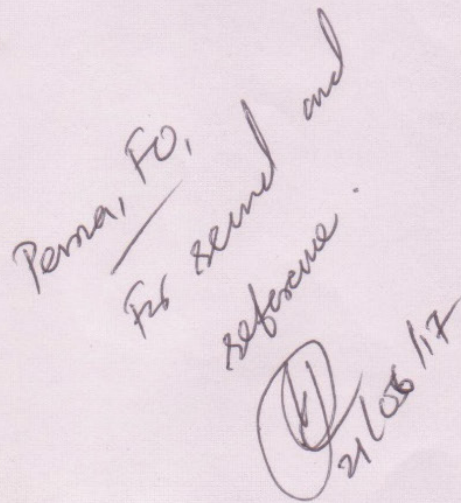 Pema, FO,
For record and
reference.
21/08/17